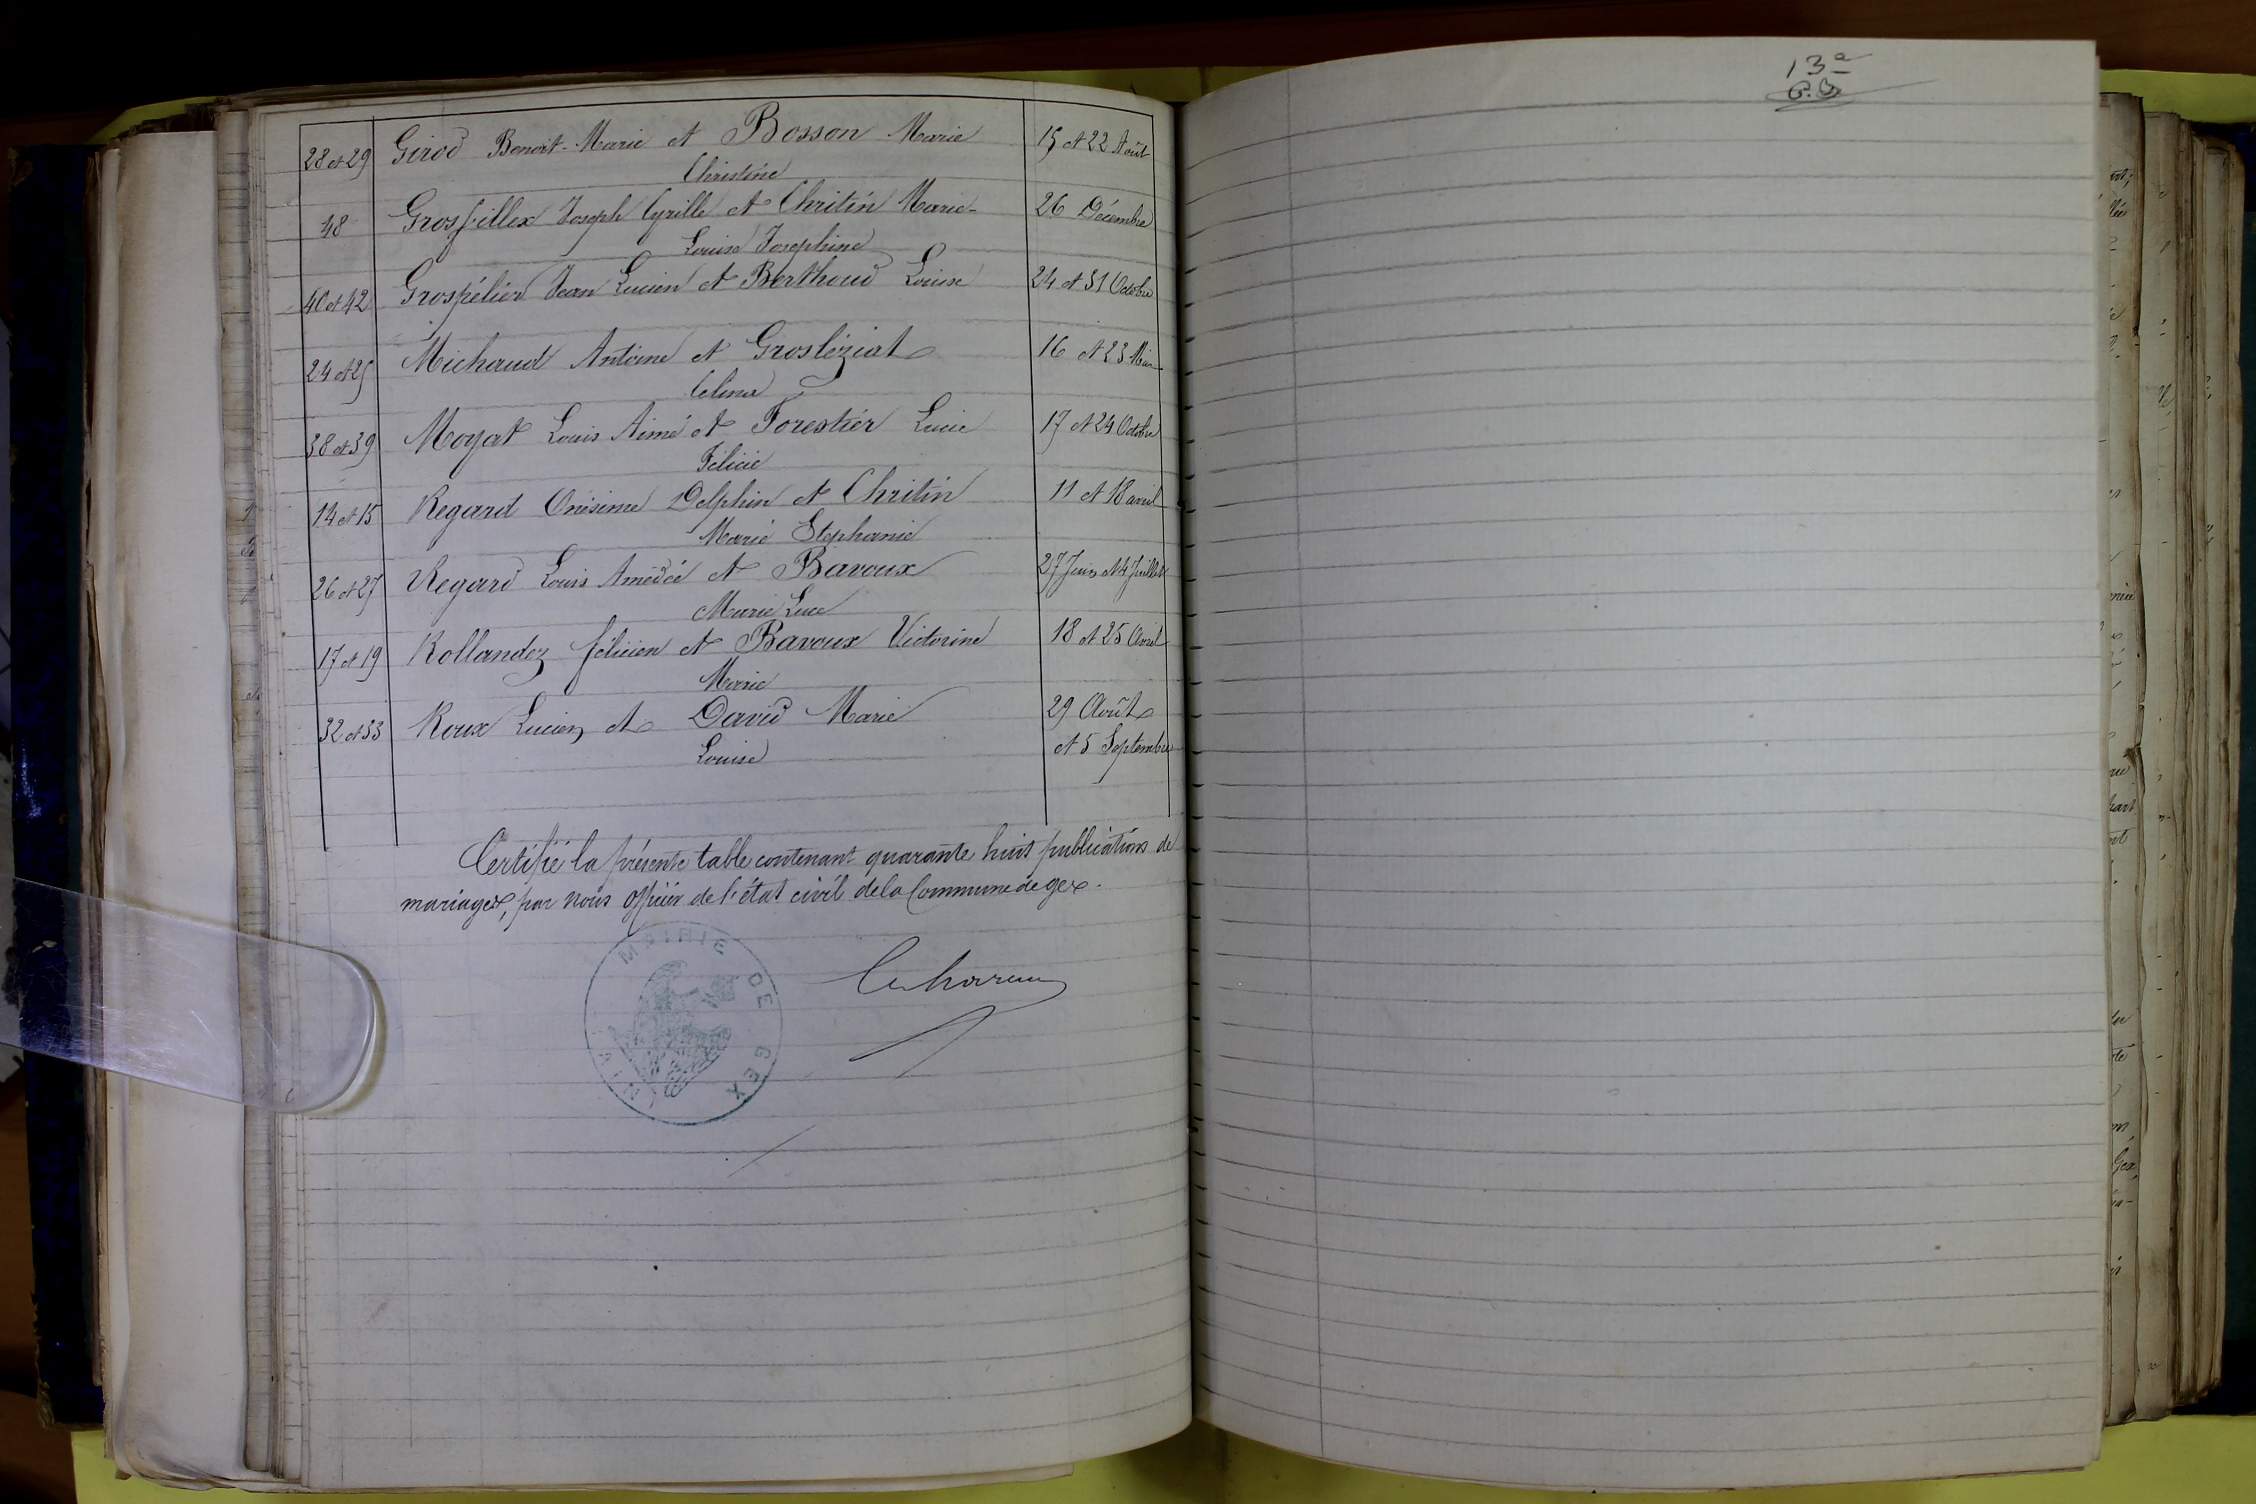 28 et 29 Girod Benoit-Marie et Bosson Marie 15 et 22 Août
Christine
48 Grosfillex Joseph Cyrille et Chritin Marie- 26 Décembre
Louise Josephine
40 et 42 Grospélier Jean Lucien et Berthoud Louise 24 et 31 Octobre
24 et 25 Michaud Antoine et Grosléziat 16 et 23 Mai
Célina
38 et 39 Moyat Louis Aimé et Forestier Lucie 17 et 24 Octobre
Félicie
14 et 15 Regard Onésime Delphin et Chritin 11 et 18 avril
Marie Stephanie
26 et 27 Regard Louis Amédée et Bavoux 27 Juin et 4 Juillet
Marie Luce
17 et 19 Rollandez félicien et Bavoux Victorine 18 et 25 Avril
Marie
32 et 33 Roux Lucien et David Marie 29 Août
Louise et 5 Septembre
Certifié la présente table contenant quarante huit publications de
mariages, par nous officier de l'état civil de la Commune de gex.
MAIRIE DE GEX
(AIN)
13e